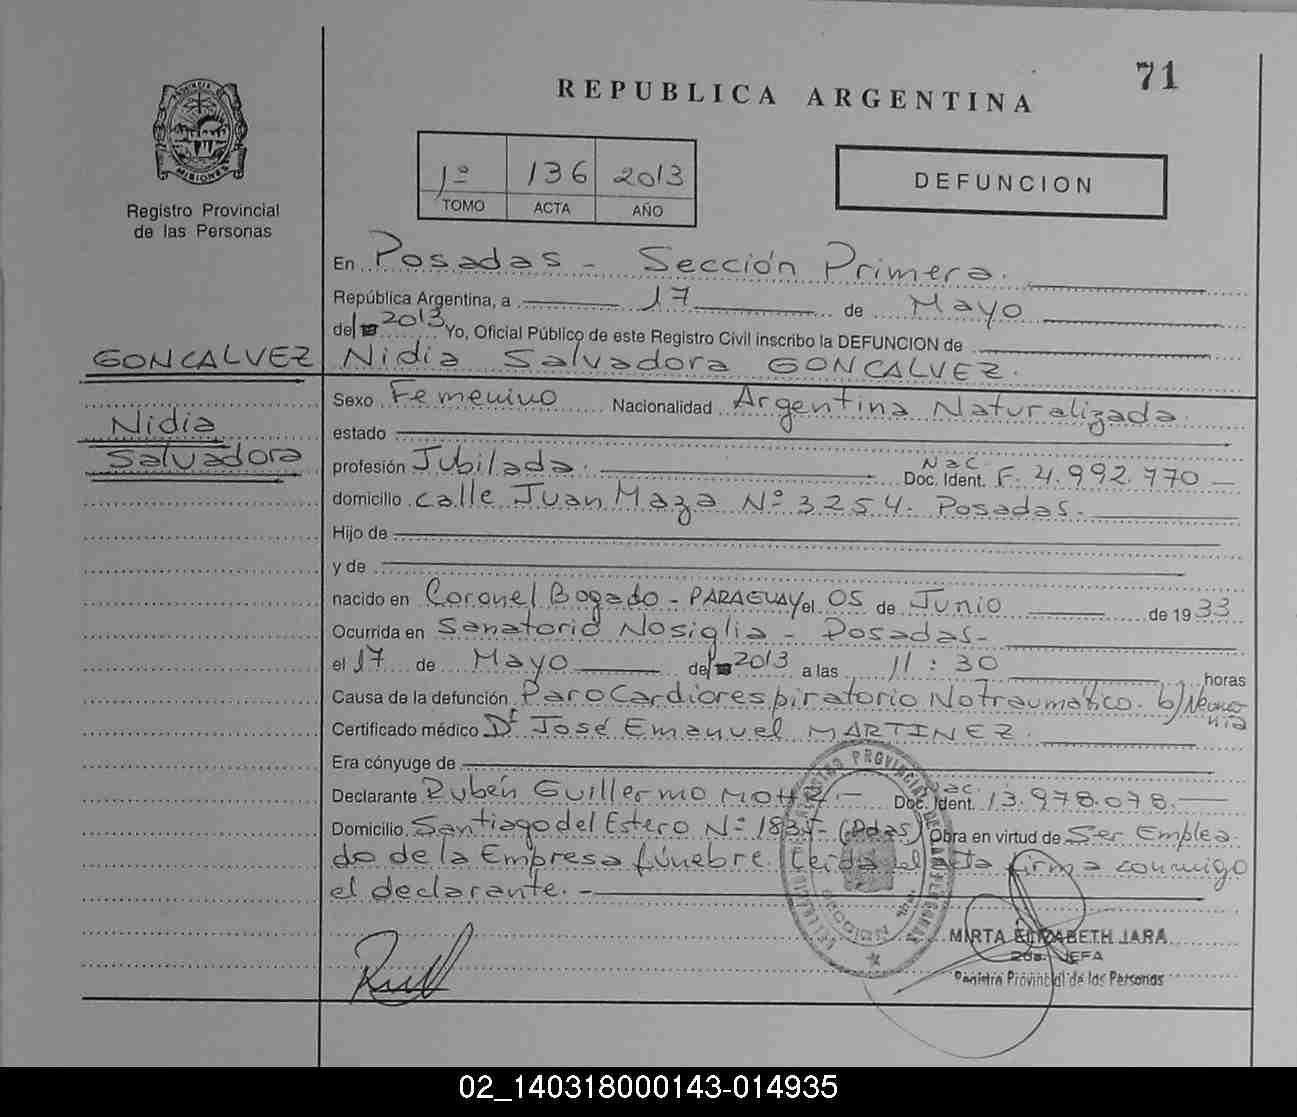 71
REPUBLICA ARGENTINA
PROVINCIA DE
MISIONES
Registro Provincial
de las Personas
1º 136 2013
TOMO ACTA AÑO
DEFUNCION
En Posadas - Sección Primera.
República Argentina, a 17 de Mayo
del 2013 Yo, Oficial Público de este Registro Civil inscribo la DEFUNCION de
GONCALVEZ Nidia Salvadora GONCALVEZ.
Sexo Femenino Nacionalidad Argentina Naturalizada.
Nidia
estado
Salvadora
profesión Jubilada. Nac. Doc. Ident. F. 4.992.770
domicilio calle Juan Maza Nº 3254. Posadas.
Hijo de
y de
nacido en Coronel Bogado - PARAGUAY el 05 de Junio de 1933
Ocurrida en Sanatorio Nosiglia - Posadas-
el 17 de Mayo del 2013 a las 11:30 horas
Causa de la defunción Paro Cardiorespiratorio No traumático. b) Neumonia
Certificado médico Dr José Emanuel MARTINEZ.
Era cónyuge de
Declarante Rubén Guillermo Doc. Ident. 13.978.078.
Domicilio Santiago del Estero Nº (Pdas) Obra en virtud de Ser Emplea-
do de la Empresa fúnebre firma conmigo
el declarante.-
MIRTA ELIZABETH JARA
2da. JEFA
Registro Provincial de las Personas
02_140318000143-014935